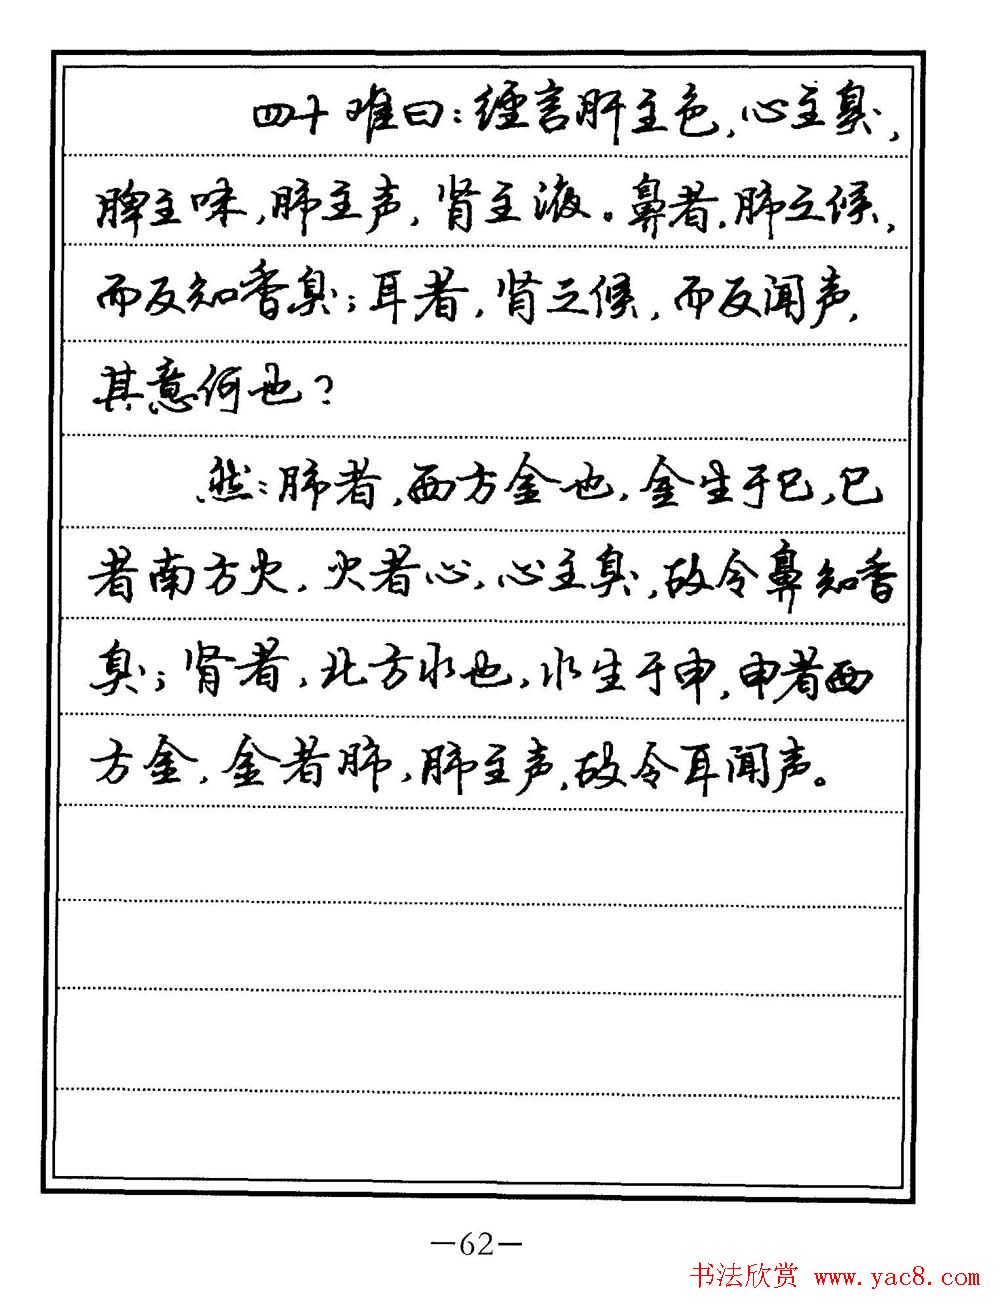 四十难曰：经言肝主色，心主臭，
脾主味，肺主声，肾主液。鼻者，肺之候，
而反知香臭；耳者，肾之候，而反闻声，
其意何也？
然：肺者，西方金也，金生于巳，巳
者南方火，火者心，心主臭，故令鼻知香
臭；肾者，北方水也，水生于申，申者西
方金，金者肺，肺主声，故令耳闻声。
—62—
书法欣赏 www.yac8.com